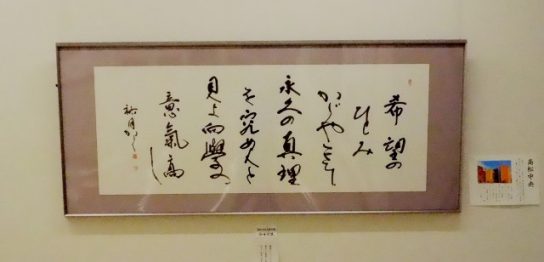 希望の
ひとみ
かゞやきて
永久の真理
を究めんと
見よ向學の
意氣高し
高松中央